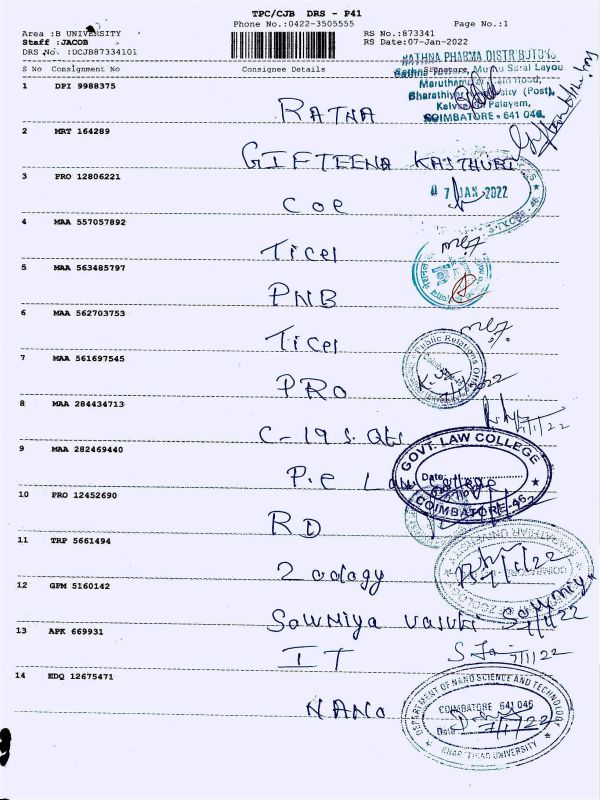 TPC/CJB DRS - P41
Phone No.:0422-3505555 Page No.:1
Area :B UNIVERSITY RS No.:873341
Staff :JACOB RS Date:07-Jan-2022
DRS No. :DCJB87334101
S No Consignment No Consignee Details Signature
RATHNA PHARMA DISTRIBUTORS
Bharathiyar University (Post),
COIMBATORE - 641 046.
1 DPI 9988375
RATNA
2 MRT 164289
GIFTEENA KASTHURI
3 PRO 12806221
07 JAN 2022
COE
4 MAA 557057892
TICEL
5 MAA 563485797
PNB
6 MAA 562703753
TICEL
7 MAA 561697545
Public Relations
PRO
7/1/2022
8 MAA 284434713
C-19 S. Qts
7/1/22
9 MAA 282469440
GOVT. LAW COLLEGE
Date:
COIMBATORE-46
P.e Law College
10 PRO 12452690
RD
11 TRP 5661494
Zoology
7/1/22
12 GPM 5160142
Sowmiya Vasuki Sowmiya
7/1/22
13 APK 669931
IT
7/1/22
14 EDQ 12675471
NANO
DEPARTMENT OF NANO SCIENCE AND TECHNOLOGY
COIMBATORE 641 046
Date: 7/1/22
BHARATHIAR UNIVERSITY